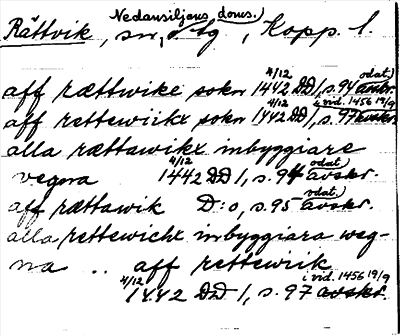 Nedansiljens doms.)
Rättvik, sn, o tg, Kopp. l.
odat.)
aff rættwike sokn 4/12 1442 DD 1, s. 94 avskr.
i vid. 1456 19/9
aff rettewiikx sokn 4/12 1442 DD 1, s. 97 avskr.
alla rættawikx inbyggiare
odat.)
vegna 4/12 1442 DD 1, s. 94 avskr.
odat.)
aff rættawik D:o, s. 95 avskr.
alla rettewicht inbyggiara weg-
na .. aff rettewiik
i vid. 1456 19/9
4/12 1442 DD 1, s. 97 avskr.